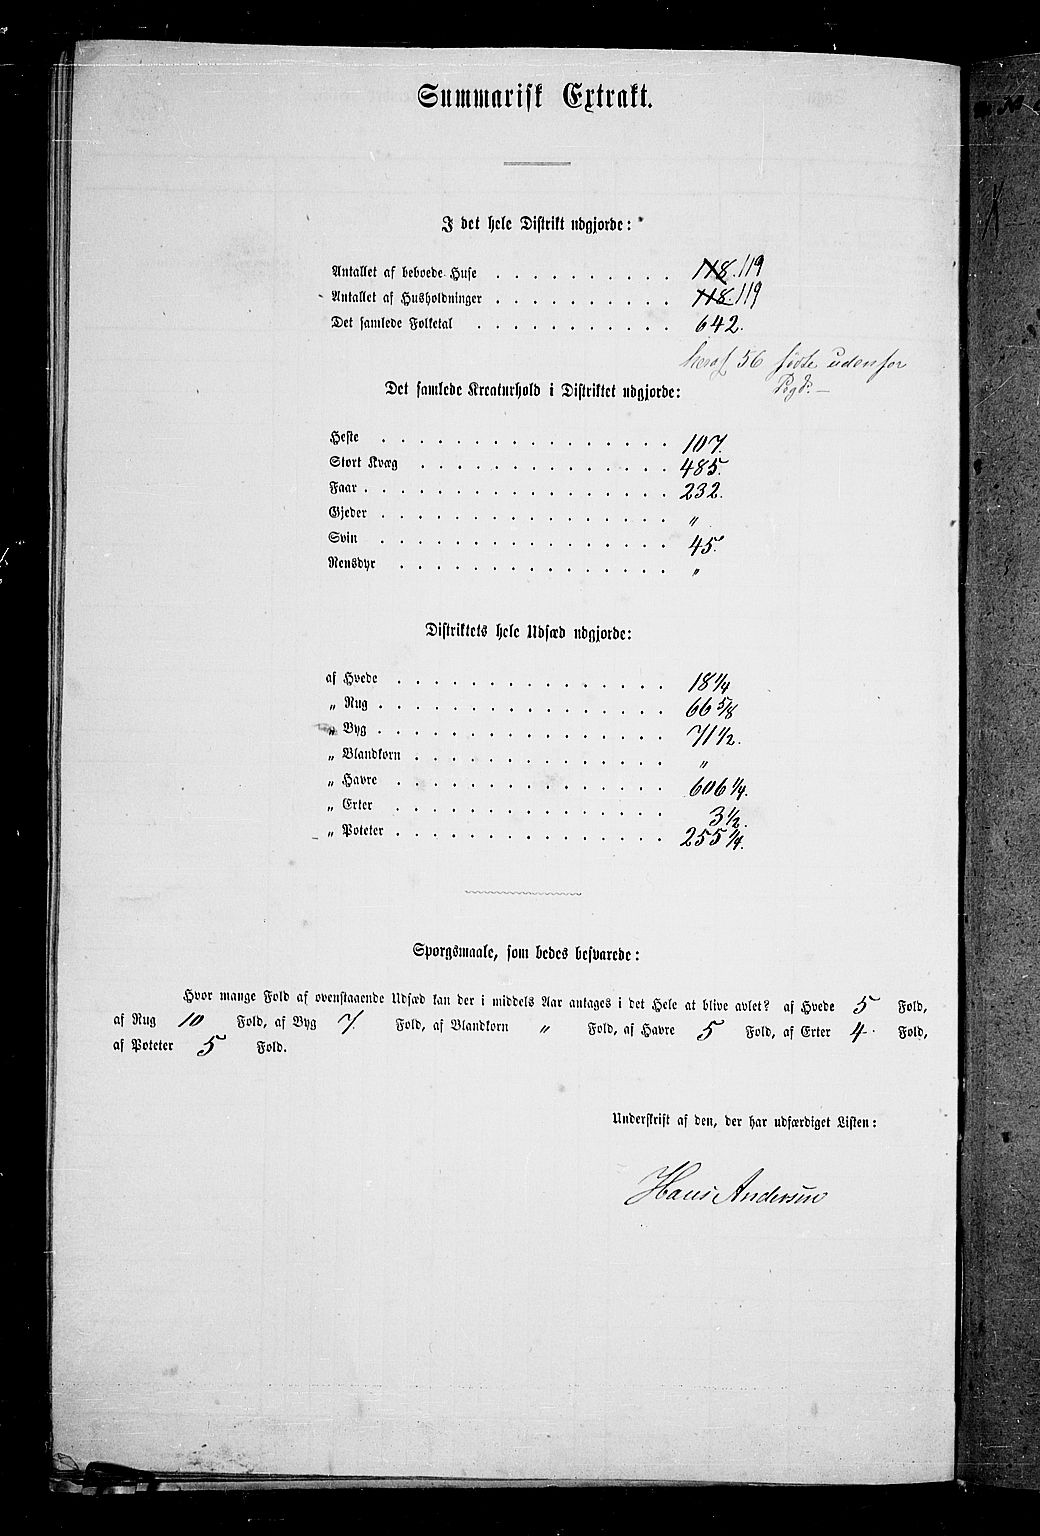 Summarisk Extrakt.
I det hele Distrikt udgjorde:
Antallet af beboede Huse . . . . . . . . . . 118. 119
Antallet af Husholdninger . . . . . . . . . . 118. 119
Det samlede Folketal . . . . . . . . . . . 642.
heraf 56 fødte udenfor
Pgd. —
Det samlede Kreaturhold i Distriktet udgjorde:
Heste . . . . . . . . . . . . . . . . 107.
Stort Kvæg . . . . . . . . . . . . . . 485.
Faar . . . . . . . . . . . . . . . . . 232.
Gjeder . . . . . . . . . . . . . . . . „
Svin . . . . . . . . . . . . . . . . 45.
Rensdyr . . . . . . . . . . . . . . . „
Distriktets hele Udsæd udgjorde:
af Hvede . . . . . . . . . . . . . . . 18 1/4
„ Rug . . . . . . . . . . . . . . . . 66 5/8
„ Byg . . . . . . . . . . . . . . . . 71 1/2.
„ Blandkorn . . . . . . . . . . . . . . „
„ Havre . . . . . . . . . . . . . . . 606 1/4.
„ Erter . . . . . . . . . . . . . . . 3 1/2.
„ Poteter . . . . . . . . . . . . . . . 255 1/4.
Spørgsmaale, som bedes besvarede:
Hvor mange Fold af ovenstaaende Udsæd kan der i middels Aar antages i det Hele at blive avlet? af Hvede 5 Fold,
af Rug 10 Fold, af Byg 7. Fold, af Blandkorn „ Fold, af Havre 5 Fold, af Erter 4. Fold,
af Poteter 5 Fold.
Underskrift af den, der har udfærdiget Listen:
Hans Andersen